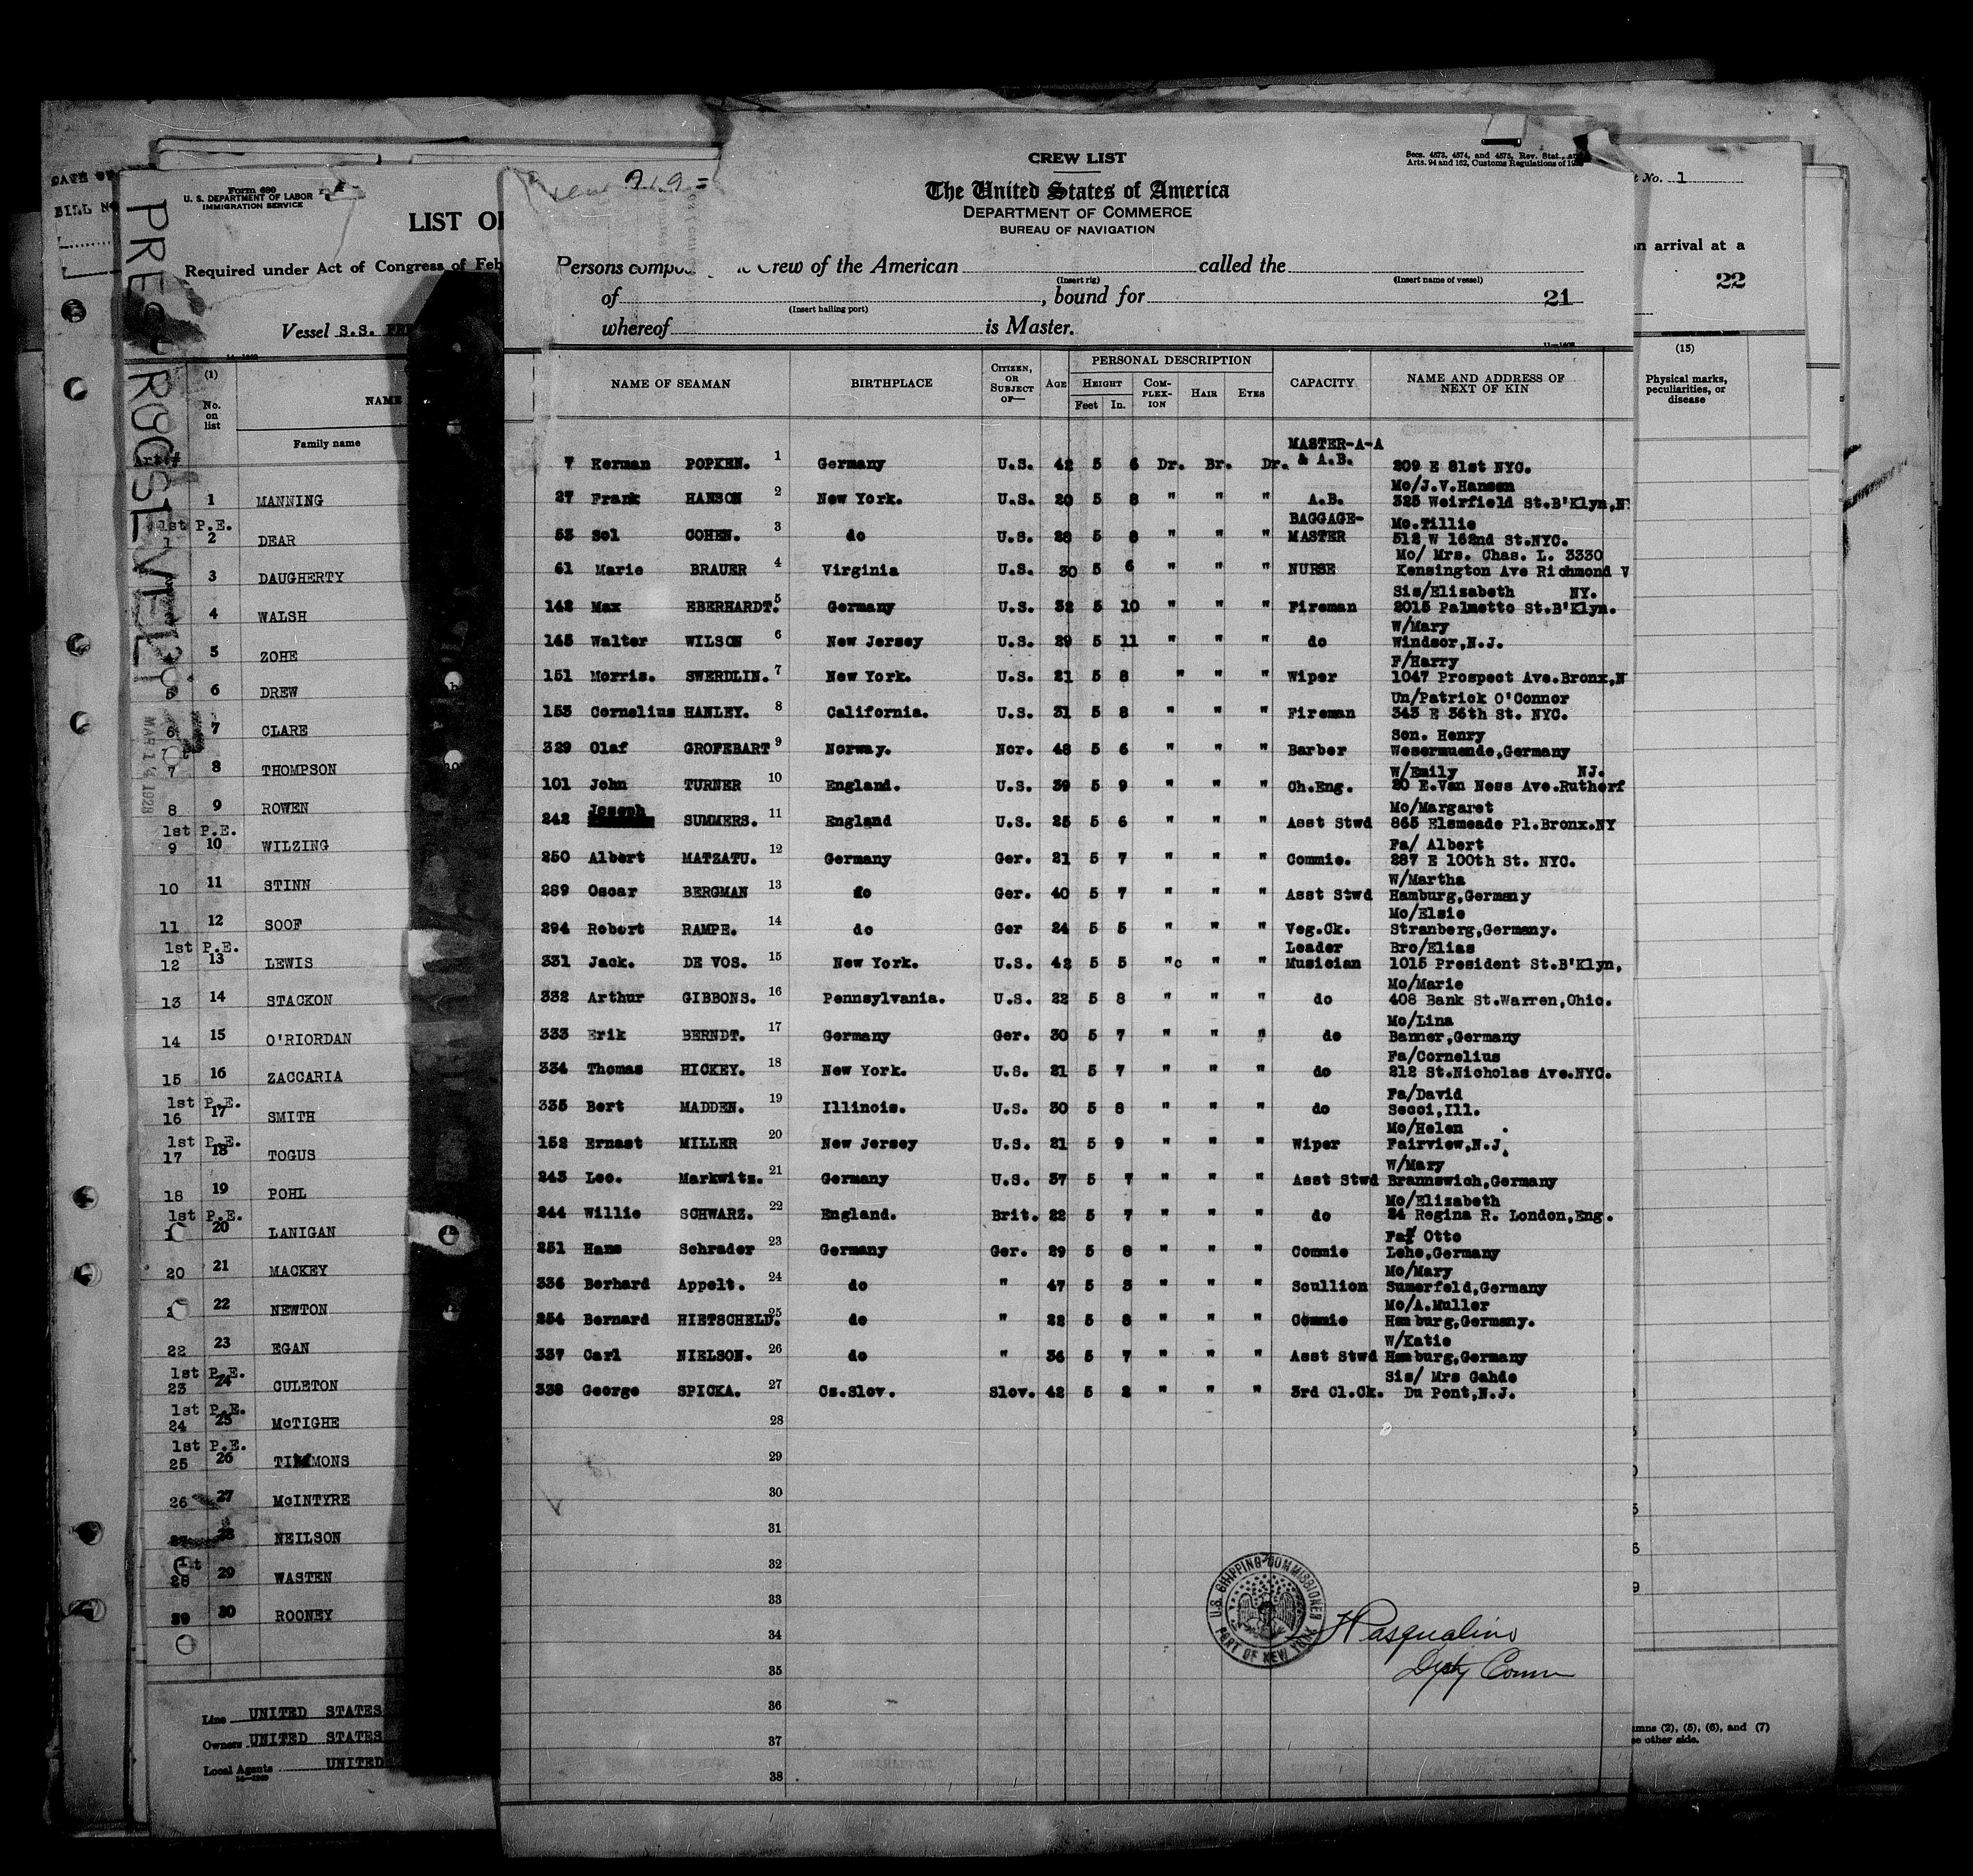 DATE OF
BILL NO
Form 680
U. S. DEPARTMENT OF LABOR
IMMIGRATION SERVICE
LIST OF
Required under Act of Congress of Feb
Vessel S.S. PRE
PRES. ROOSEVELT
MAR 1 1928
(1)
No. on list
NAME
Family name
Art.#
1 MANNING
1st P.E.
1 2 DEAR
3 DAUGHERTY
4 WALSH
5 ZOHE
5 6 DREW
6 7 CLARE
7 8 THOMPSON
8 9 ROWEN
1st P.E.
9 10 WILZING
10 11 STINN
11 12 SOOF
1st P.E.
12 13 LEWIS
13 14 STACKON
14 15 O'RIORDAN
15 16 ZACCARIA
1st P.E.
16 17 SMITH
1st P.E.
17 18 TOGUS
18 19 POHL
1st P.E.
20 LANIGAN
20 21 MACKEY
22 NEWTON
22 23 EGAN
1st P.E.
23 24 CULETON
1st P.E.
24 25 McTIGHE
1st P.E.
25 26 TIMMONS
26 27 McINTYRE
28 NEILSON
28 29 WASTEN
29 30 ROONEY
Line UNITED STATES
Owners UNITED STATES
Local Agents UNITED
CREW LIST
Secs. 4573, 4574, and 4575, Rev. Stat., an
Arts. 94 and 162, Customs Regulations of 19
The United States of America
DEPARTMENT OF COMMERCE
BUREAU OF NAVIGATION
Persons compos Crew of the American called the
(Insert rig) (Insert name of vessel)
of , bound for 21
(Insert hailing port)
whereof is Master.
NAME OF SEAMAN BIRTHPLACE CITIZEN, OR SUBJECT OF— AGE PERSONAL DESCRIPTION CAPACITY NAME AND ADDRESS OF NEXT OF KIN
HEIGHT COM-PLEX-ION HAIR EYES
Feet In.
MASTER-A-A
7 Herman POPKEN. 1 Germany U.S. 42 5 6 Dr. Br. Dr. & A.B. 209 E 81st NYC.
Mo/J.V.Hansen
27 Frank HANSON 2 New York. U.S. 20 5 8 " " " A.B. 325 Weirfield St.B'Klyn,N
BAGGAGE- Mo.Tillie
53 Sol COHEN. 3 do U.S. 28 5 8 " " " MASTER 512 W 162nd St.NYC.
Mo/ Mrs. Chas. L. 3330
61 Marie BRAUER 4 Virginia U.S. 30 5 6 " " " NURSE Kensington Ave Richmond V
Sis/Elizabeth NY.
142 Max EBERHARDT. 5 Germany U.S. 32 5 10 " " " Fireman 2015 Palmetto St.B'Klyn.
W/Mary
145 Walter WILSON 6 New Jersey U.S. 29 5 11 " " " do Windsor,N.J.
F/Harry
151 Morris. SWERDLIN. 7 New York. U.S. 21 5 8 " " " Wiper 1047 Prospect Ave.Bronx,N
Un/Patrick O'Connor
153 Cornelius HANLEY. 8 California. U.S. 31 5 8 " " " Fireman 343 E 36th St. NYC.
Son. Henry
329 Olaf GROFEBART 9 Norway. Nor. 48 5 6 " " " Barber Wesermuende,Germany
W/Emily NJ.
101 John TURNER 10 England. U.S. 39 5 9 " " " Ch.Eng. 20 E.Van Ness Ave.Rutherf
Joseph Mo/Margaret
242 SUMMERS. 11 England U.S. 25 5 6 " " " Asst Stwd 865 Elsmeade Pl.Bronx.NY
Fa/ Albert
250 Albert MATZATU. 12 Germany Ger. 21 5 7 " " " Commie. 287 E 100th St. NYC.
W/Martha
289 Oscar BERGMAN 13 do Ger. 40 5 7 " " " Asst Stwd Hamburg,Germany
Mo/Elsie
294 Robert RAMPE. 14 do Ger 24 5 5 " " " Veg.Ck. Stranberg,Germany.
Leader Bro/Elias
331 Jack. DE VOS. 15 New York. U.S. 42 5 5 "c " " Musician 1015 President St.B'Klyn,
Mo/Marie
332 Arthur GIBBONS. 16 Pennsylvania. U.S. 22 5 8 " " " do 408 Bank St.Warren,Ohio.
Mo/Lina
333 Erik BERNDT. 17 Germany Ger. 30 5 7 " " " do Banner,Germany
Fa/Cornelius
334 Thomas HICKEY. 18 New York. U.S. 21 5 7 " " " do 212 St.Nicholas Ave.NYC.
Fa/David
335 Bert MADDEN. 19 Illinois. U.S. 30 5 8 " " " do Secci,Ill.
Mo/Helen
152 Ernast MILLER 20 New Jersey U.S. 21 5 9 " " " Wiper Fairview,N.J.
W/Mary
243 Leo. Markwitz. 21 Germany U.S. 37 5 7 " " " Asst Stwd Brannswich,Germany
Mo/Elizabeth
244 Willie SCHWARZ. 22 England. Brit. 22 5 7 " " " do 24 Regina R. London,Eng.
Fa/ Otto
251 Hans Schrader 23 Germany Ger. 29 5 8 " " " Commie Lehe,Germany
Mo/Mary
336 Berhard Appelt. 24 do " 47 5 3 " " " Scullion Sumerfeld,Germany
Mo/A.Muller
254 Bernard HIETSCHELD. 25 do " 22 5 8 " " " Commie Hamburg,Germany.
W/Katie
337 Carl NIELSON. 26 do " 36 5 7 " " " Asst Stwd Hamburg,Germany
Sis/ Mrs Gahde
338 George SPICKA. 27 Cz.Slov. Slov. 42 5 2 " " " 3rd Cl.Ck. Du Pont,N.J.
28
29
30
31
32
33
34
35
36
37
38
U.S. SHIPPING COMMISSIONER
PORT OF NEW YORK
H Pasqualino
Dpty Comm
t No. 1
n arrival at a
22
(15)
Physical marks, peculiarities, or disease
mns (2), (5), (6), and (7)
e other side.